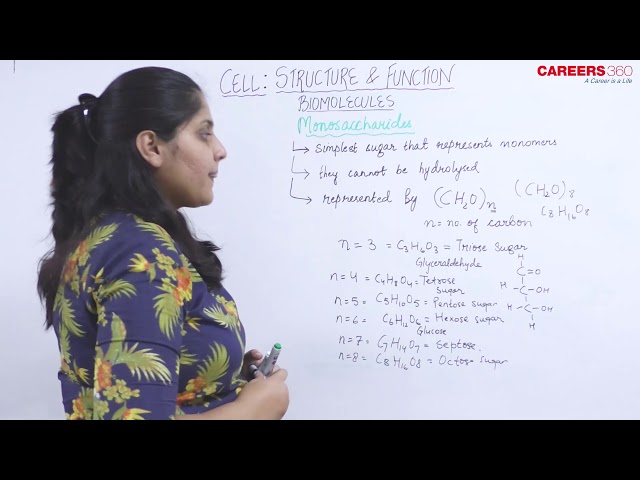 CAREERS360
A Career is a Life
CELL: STRUCTURE & FUNCTION
BIOMOLECULES
Monosaccharides
↳ simplest sugar that represents monomers
↳ they cannot be hydrolysed
↳ represented by (CH2O)n
(CH2O)8
C8H16O8
n = no. of carbon
n = 3 = C3H6O3 = Triose Sugar
Glyceraldehyde
n = 4 = C4H8O4 = Tetrose Sugar
n = 5 = C5H10O5 = Pentose sugar
n = 6 = C6H12O6 = Hexose sugar
Glucose
n = 7 = C7H14O7 = Septose.
n = 8 = C8H16O8 = Octose sugar
H
C=O
H-C-OH
H-C-OH
H